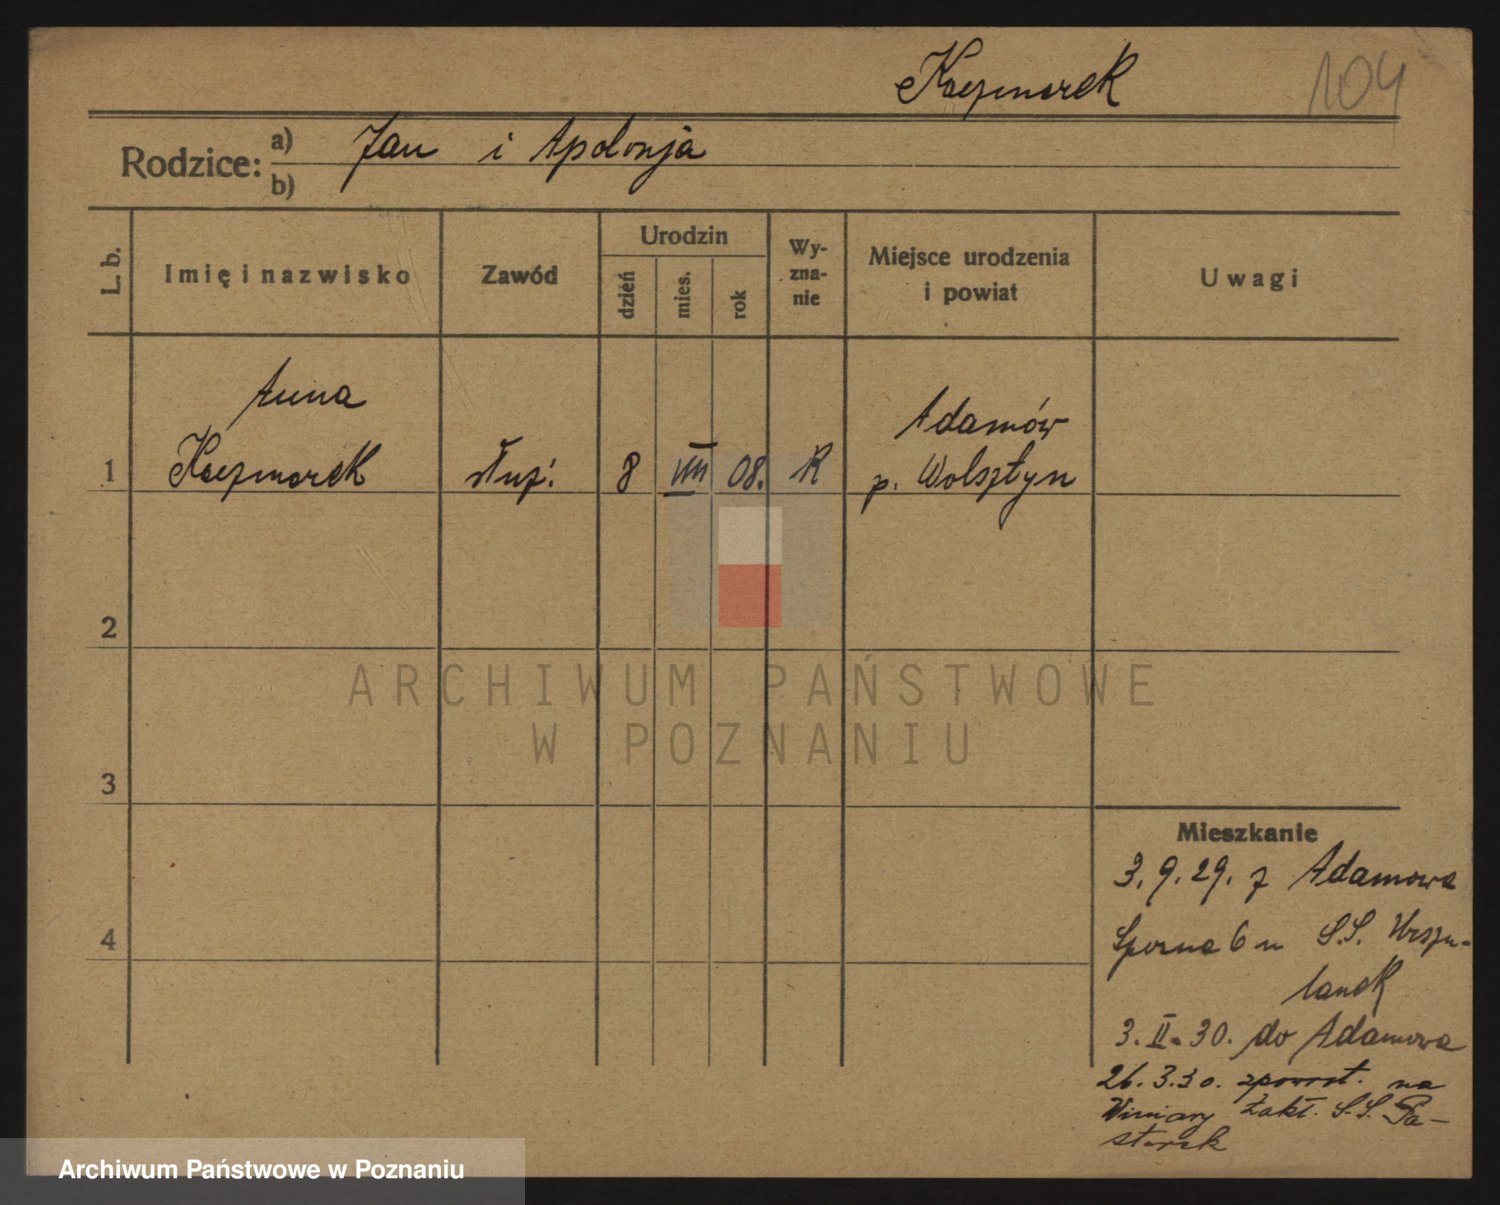 Kaczmarek
104
Rodzice: a) Jan i Apolonja
b)
L. b.
Imię i nazwisko
Zawód
Urodzin
dzień
mies.
rok
Wy-
zna-
nie
Miejsce urodzenia
i powiat
Uwagi
Anna
Adamów
1 Kaczmarek służ. 8 VIII 08. R p. Wolsztyn
2
ARCHIWUM PAŃSTWOWE
W POZNANIU
3
Mieszkanie
3. 9. 29. z Adamowa
4
Sporna 6 u S.S. Urszu-
lanek
3. II. 30. do Adamowa
26. 3. 30. zpowrot. na
Winiary Zakł. S.S. Pa-
sterek
Archiwum Państwowe w Poznaniu